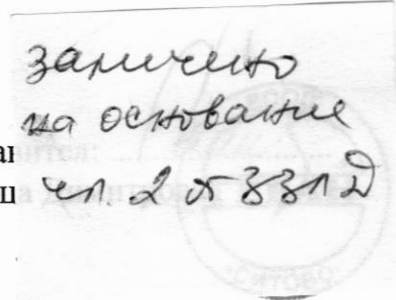 заличено
на основание
чл. 2 от ЗЗЛД